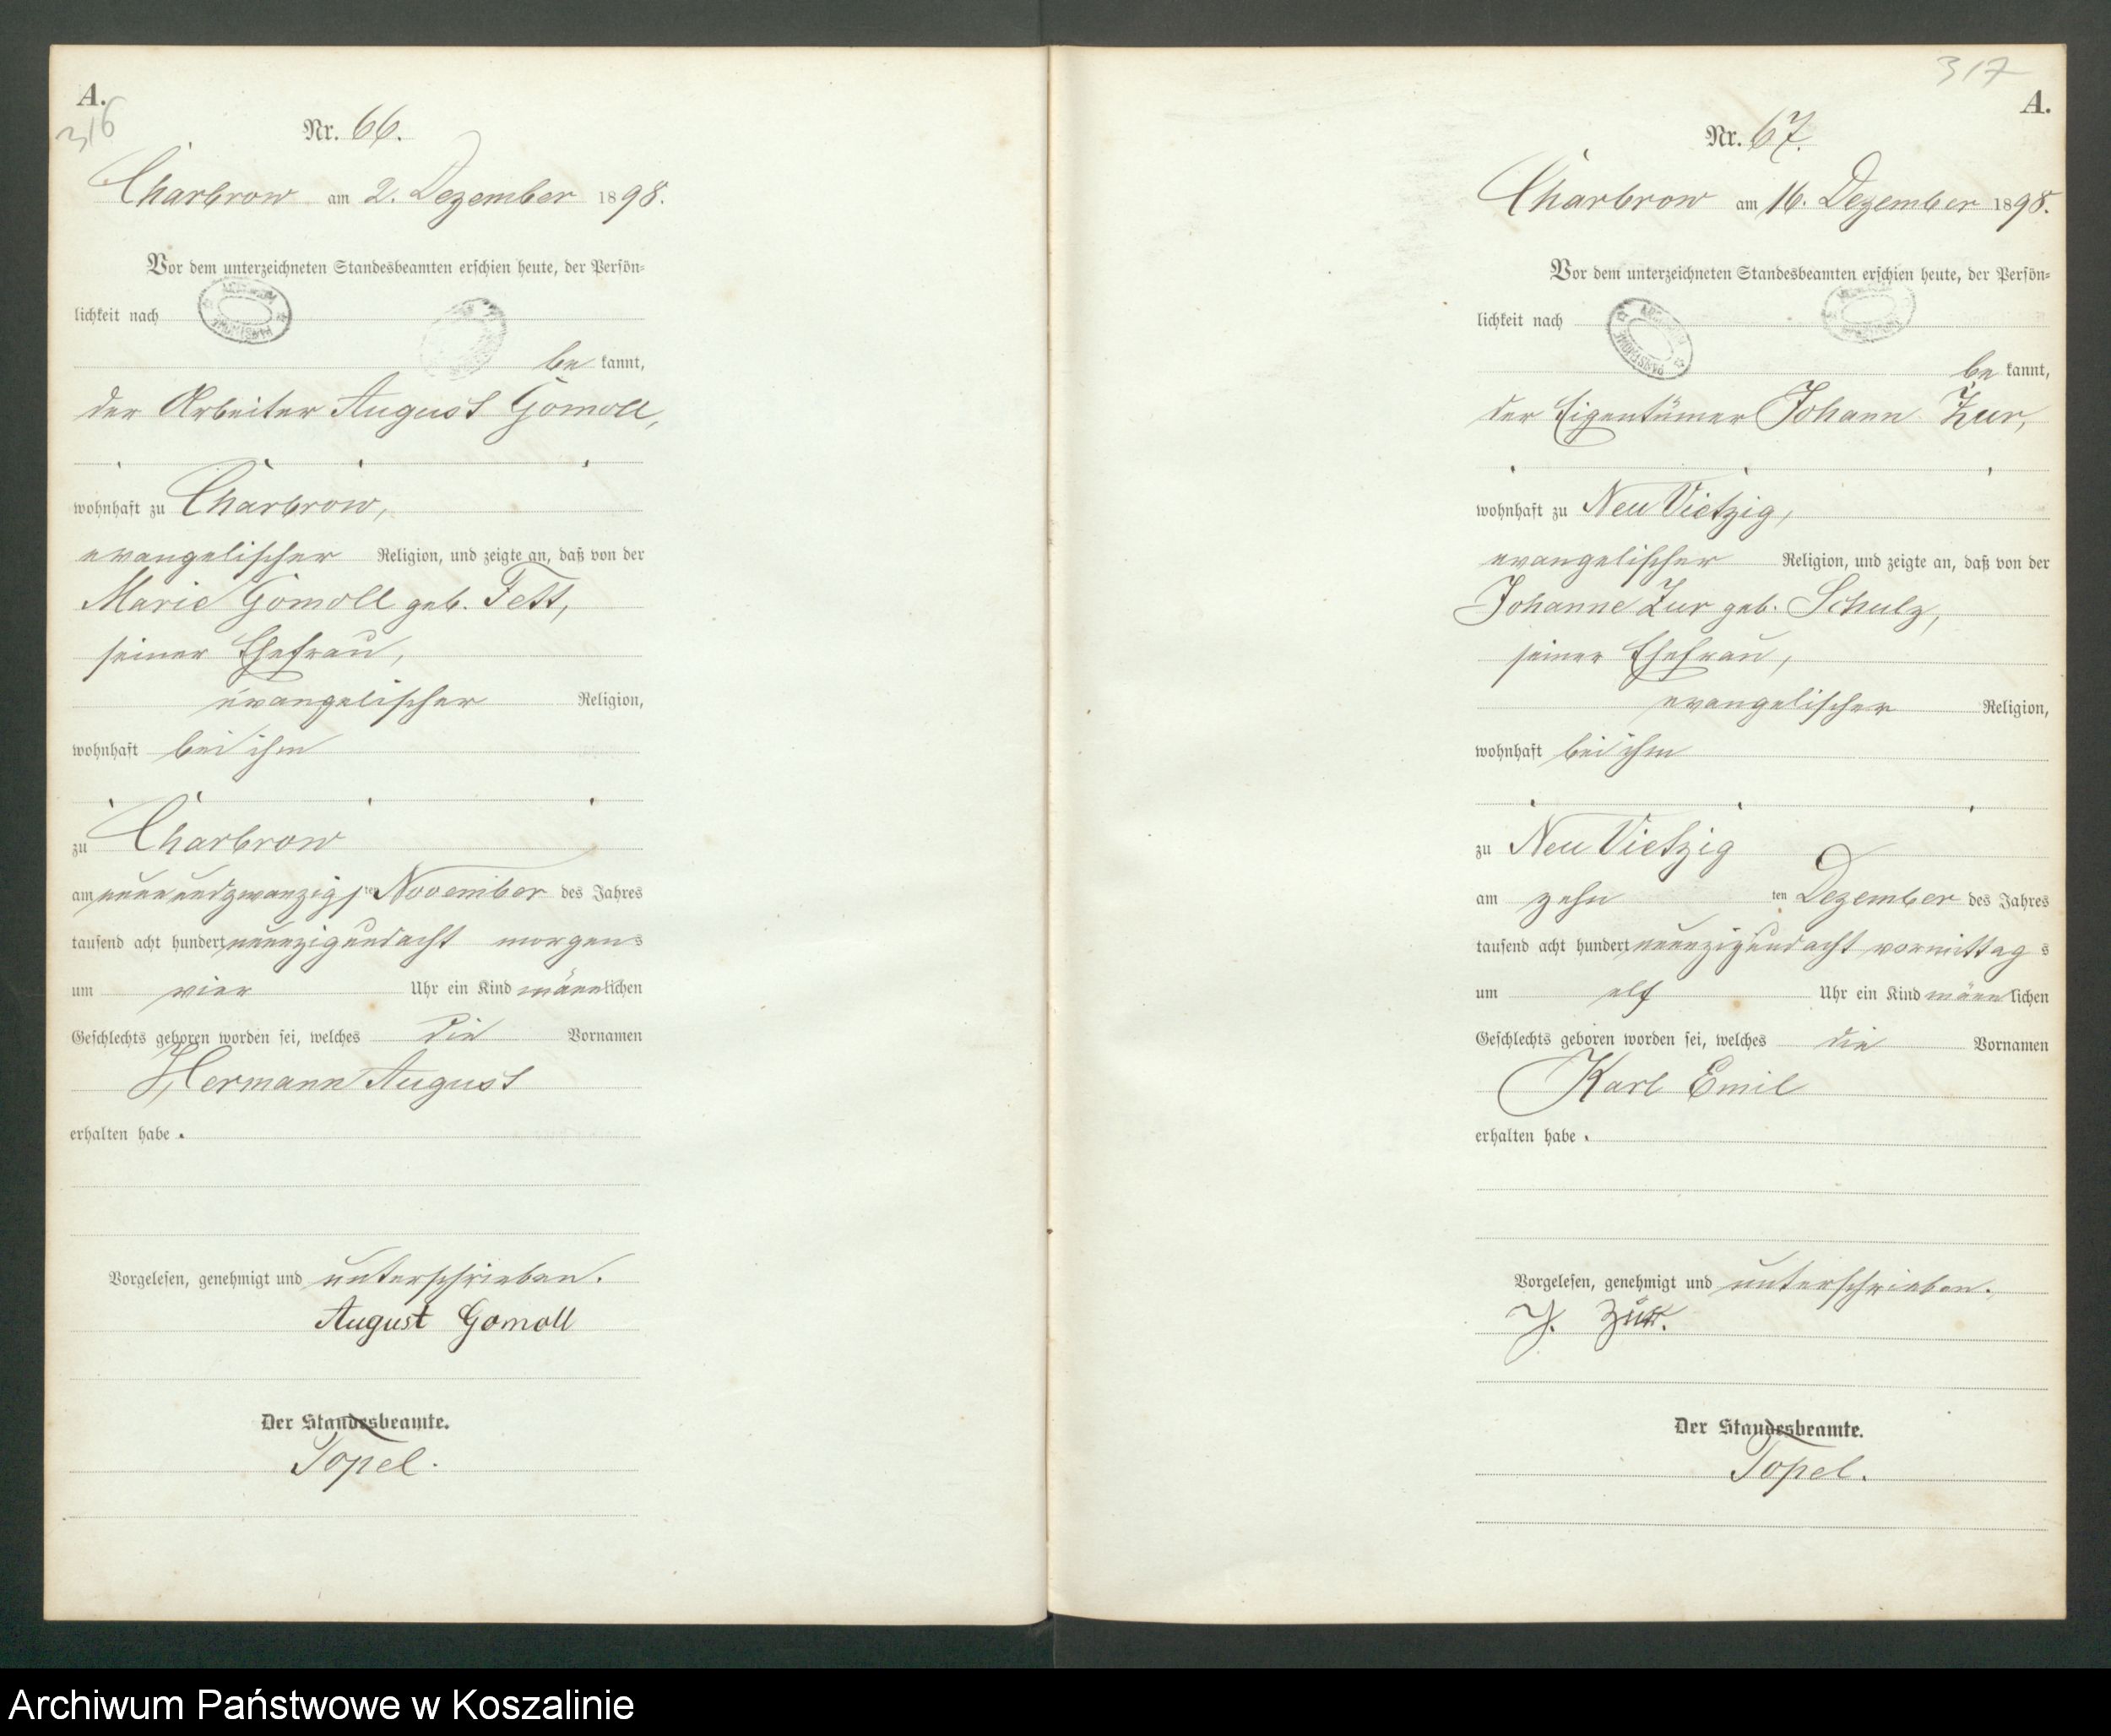 A.
316
Nr. 66.
Charbrow am 2. Dezember 1898.
Vor dem unterzeichneten Standesbeamten erschien heute, der Persön-
lichkeit nach
be kannt,
der Arbeiter August Gomoll,
wohnhaft zu Charbrow,
evangelischer Religion, und zeigte an, daß von der
Marie Gomoll geb. Fett,
seiner Ehefrau,
evangelischer Religion,
wohnhaft bei ihm
zu Charbrow
am neunundzwanzig ten November des Jahres
tausend acht hundert neunzigundacht morgens
um vier Uhr ein Kind männlichen
Geschlechts geboren worden sei, welches die Vornamen
Hermann August
erhalten habe.
Vorgelesen, genehmigt und unterschrieben.
August Gomoll
Der Standesbeamte.
Topel.
317
A.
Nr. 67.
Charbrow am 16. Dezember 1898.
Vor dem unterzeichneten Standesbeamten erschien heute, der Persön-
lichkeit nach
be kannt,
der Eigentümer Johann Zur,
wohnhaft zu Neu Vietzig,
evangelischer Religion, und zeigte an, daß von der
Johanne Zur geb. Schulz,
seiner Ehefrau,
evangelischer Religion,
wohnhaft bei ihm
zu Neu Vietzig
am zehn ten Dezember des Jahres
tausend acht hundert neunzigundacht vormittags
um elf Uhr ein Kind männlichen
Geschlechts geboren worden sei, welches die Vornamen
Karl Emil
erhalten habe.
Vorgelesen, genehmigt und unterschrieben.
J.
Der Standesbeamte.
Topel.
Archiwum Państwowe w Koszalinie